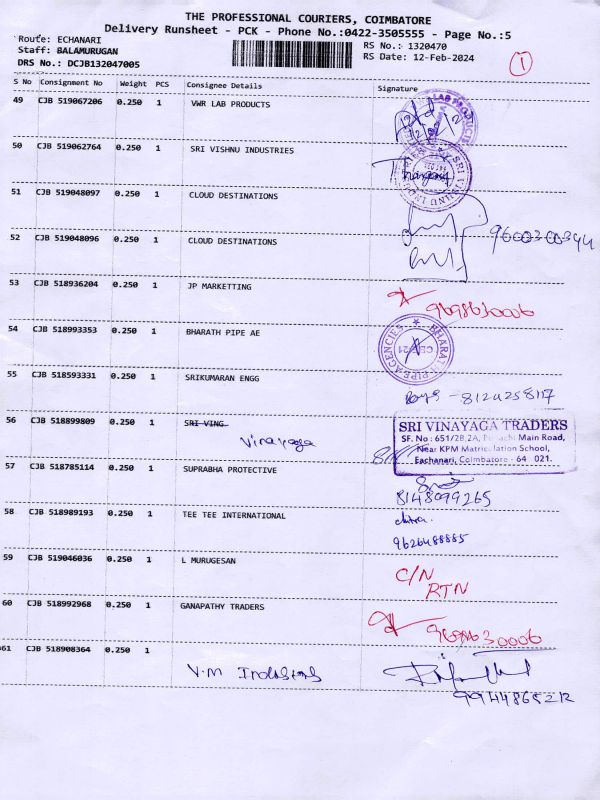 THE PROFESSIONAL COURIERS, COIMBATORE
Delivery Runsheet - PCK - Phone No.:0422-3505555 - Page No.:5
Route: ECHANARI
Staff: BALAMURUGAN
DRS No.: DCJB132047005
RS No.: 1320470
RS Date: 12-Feb-2024
1
S No Consignment No Weight PCS Consignee Details Signature
49 CJB 519067206 0.250 1 VWR LAB PRODUCTS
50 CJB 519062764 0.250 1 SRI VISHNU INDUSTRIES
51 CJB 519048097 0.250 1 CLOUD DESTINATIONS
52 CJB 519048096 0.250 1 CLOUD DESTINATIONS
53 CJB 518936204 0.250 1 JP MARKETTING
9698630006
54 CJB 518993353 0.250 1 BHARATH PIPE AE
55 CJB 518593331 0.250 1 SRIKUMARAN ENGG
8124258117
56 CJB 518899809 0.250 1 SRI VING
Vinayaga
SRI VINAYAGA TRADERS
SF. No : 651/2B,2A, Main Road,
Near KPM Matriculation School,
Eachanari, Coimbatore - 64 021.
57 CJB 518785114 0.250 1 SUPRABHA PROTECTIVE
8148099265
58 CJB 518989193 0.250 1 TEE TEE INTERNATIONAL
chitra.
9626488885
59 CJB 519046036 0.250 1 L MURUGESAN
C/N
RTN
60 CJB 518992968 0.250 1 GANAPATHY TRADERS
9698630006
61 CJB 518908364 0.250 1
V.M Industries